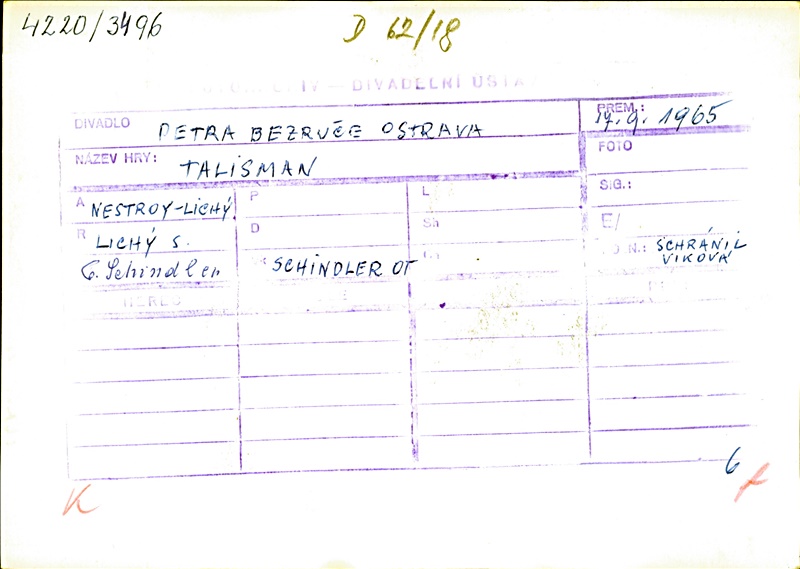 4220/3496
D 62/18
DIVADELNÍ ÚSTA
DIVADLO PETRA BEZRUČE OSTRAVA
PREM.: 17.9.1965
NÁZEV HRY: TALISMAN
FOTO
SIG.:
A NESTROY-LICHÝ
P
L
R LICHÝ S.
D
Sh
E/
N.: SCHRÁNIL
VIKOVÁ
Schindler
SCHINDLER OT
HEREC
6
K